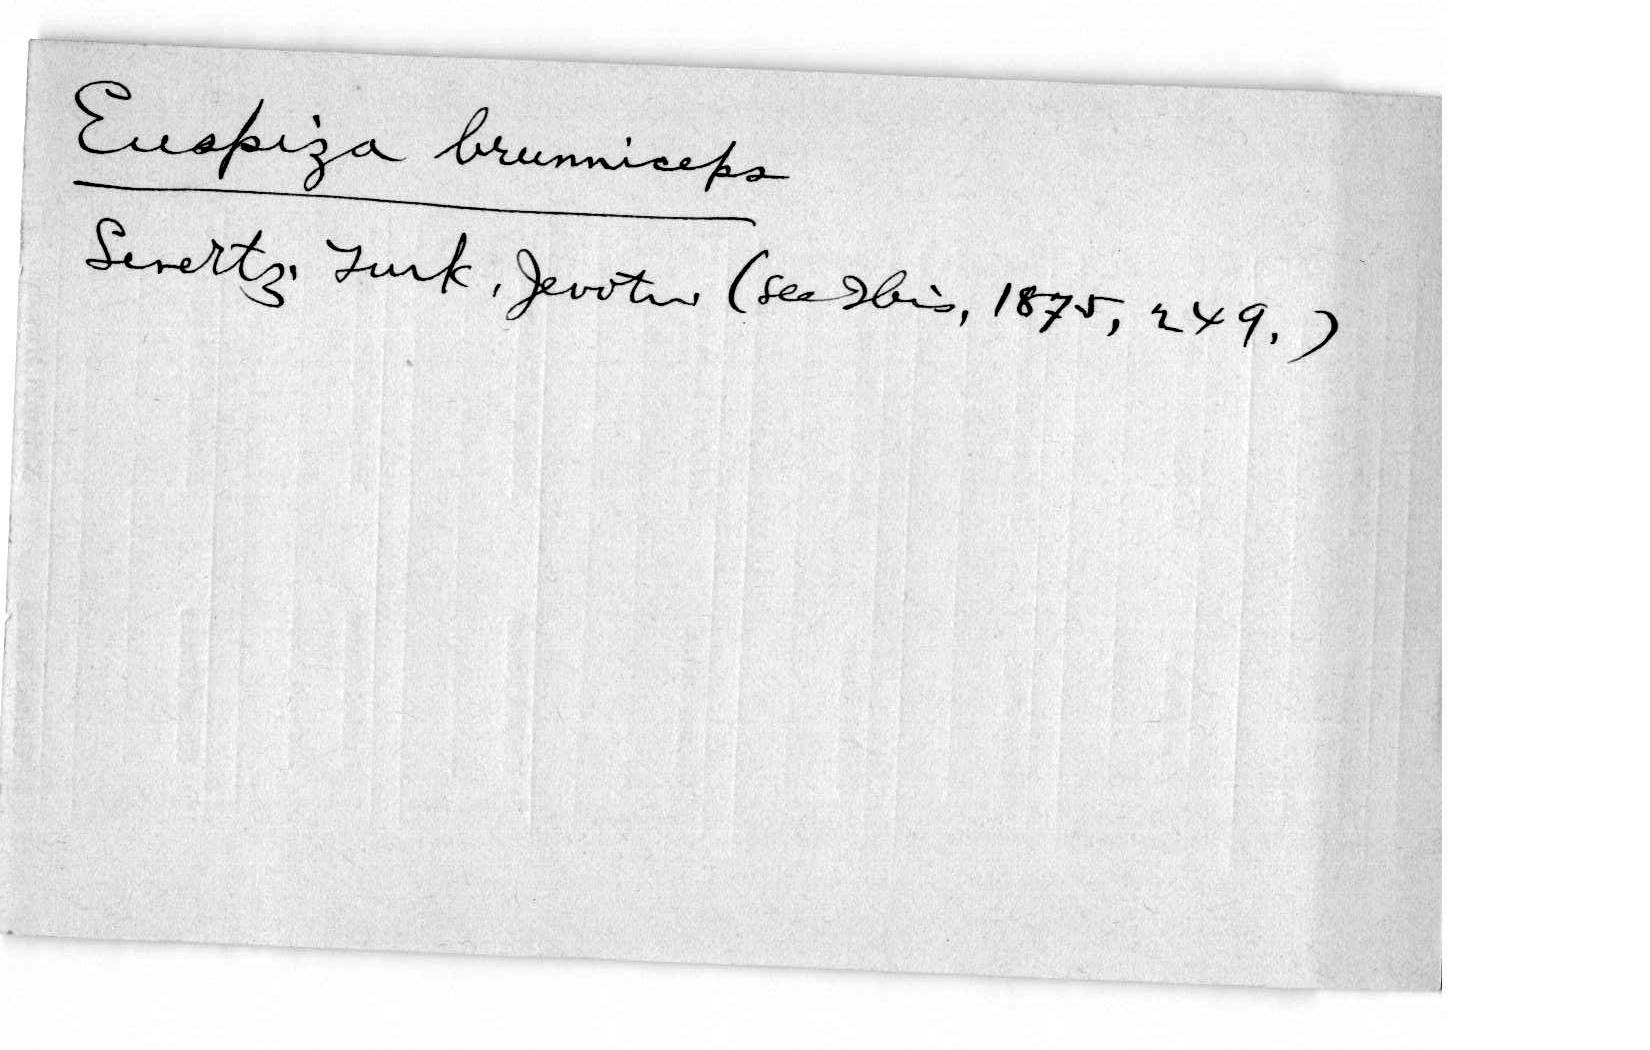 Euspiza brunniceps
Severtz. Turk. Jevotn (see Ibis, 1875, 249.)